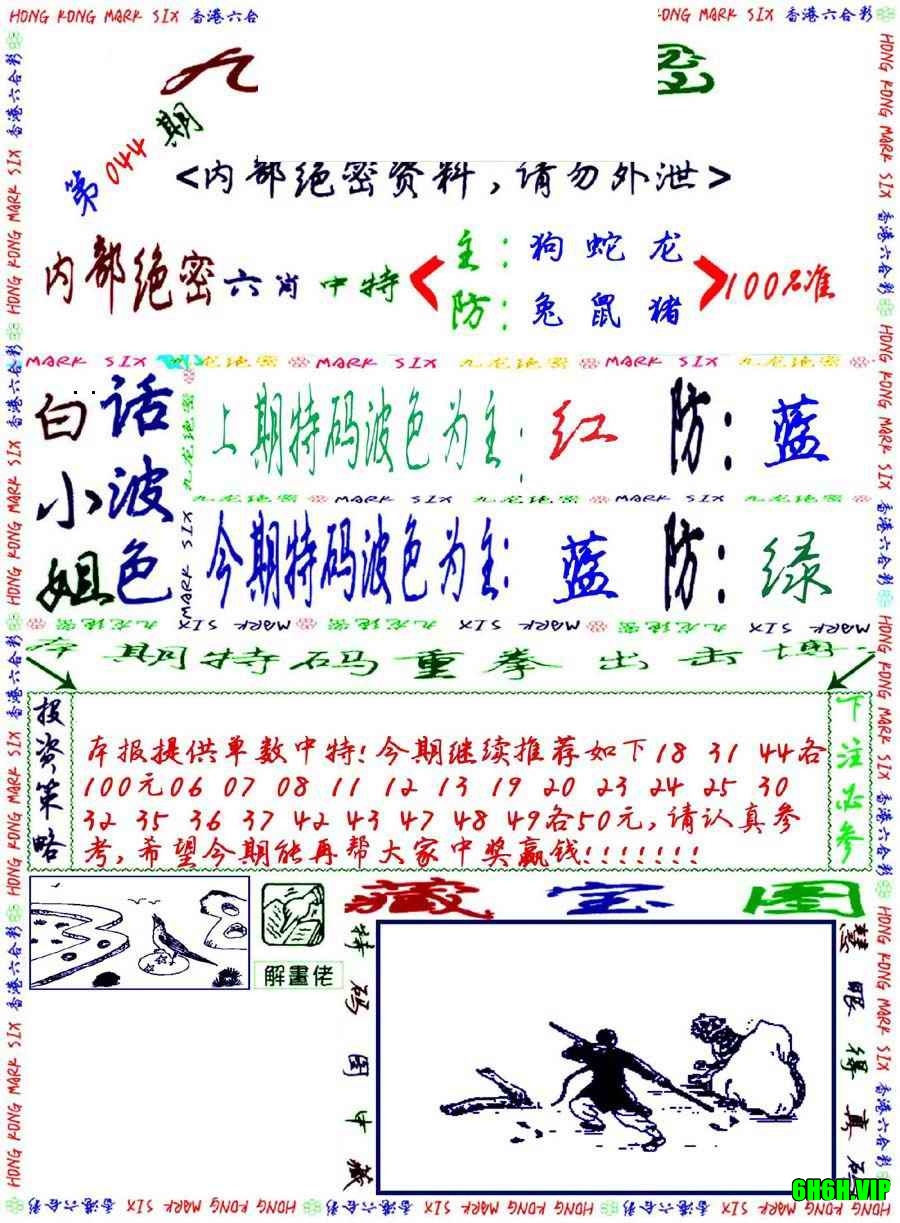 HONG KONG MARK SIX 香港六合彩
第044期
<内部绝密资料,请勿外泄>
内部绝密六肖中特
主:狗 蛇 龙
防:兔 鼠 猪
100%准
MARK SIX 九龙绝密 MARK SIX 九龙绝密 MARK SIX 九龙绝密
白小姐
话波色
上期特码波色为主:红 防:蓝
九龙绝密 MARK SIX 九龙绝密 MARK SIX 九龙绝密
今期特码波色为主:蓝 防:绿
本期特码重拳出击
投资策略
本报提供单数中特!今期继续推荐如下18 31 44各
100元06 07 08 11 12 13 19 20 23 24 25 30
32 35 36 37 42 43 47 48 49各50元,请认真参
考,希望今期能再帮大家中奖赢钱!!!!!!!
下注必参
藏宝图
解畫佬
特码图中藏
慧眼得真码
6H6H.VIP